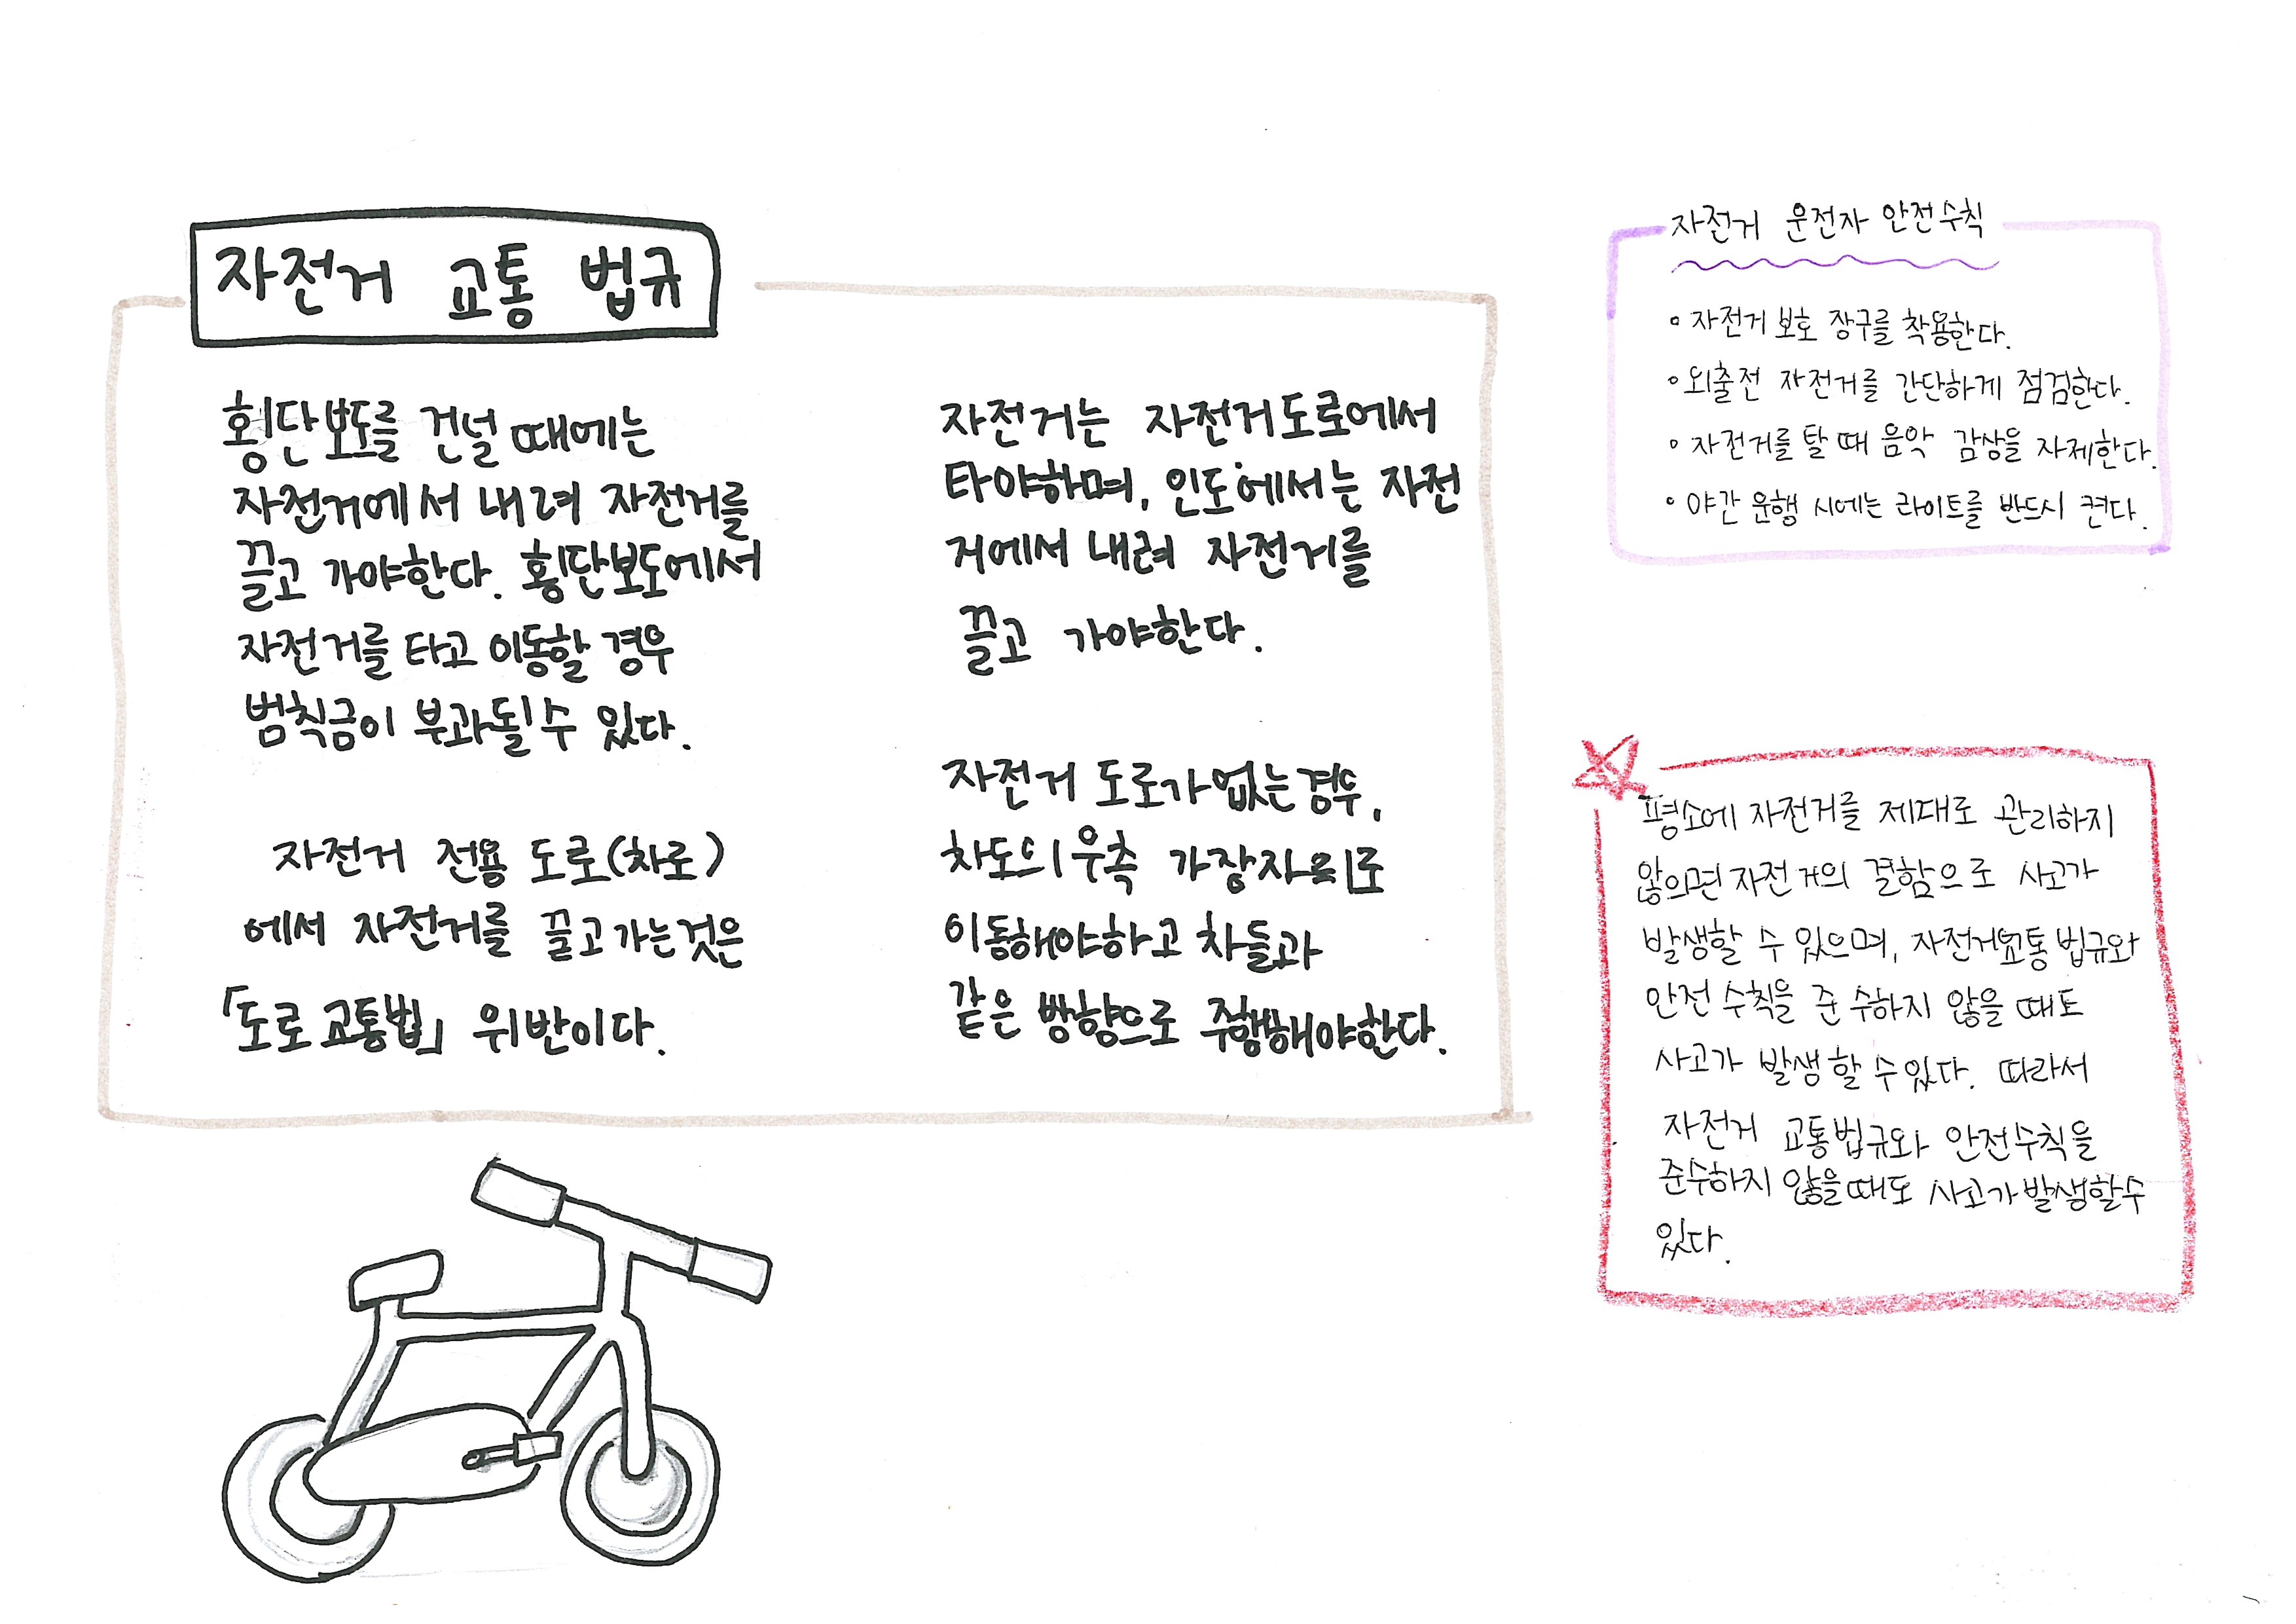 자전거 교통 법규
횡단보도를 건널 때에는
자전거에서 내려 자전거를
끌고 가야한다. 횡단보도에서
자전거를 타고 이동할 경우
범칙금이 부과될 수 있다.
자전거 전용 도로(차로)
에서 자전거를 끌고 가는 것은
「도로교통법」 위반이다.
자전거는 자전거도로에서
타야하며, 인도에서는 자전
거에서 내려 자전거를
끌고 가야한다.
자전거 도로가 없는 경우,
차도의 우측 가장자리로
이동해야하고 차들과
같은 방향으로 주행해야한다.
자전거 운전자 안전수칙
• 자전거 보호 장구를 착용한다.
• 외출전 자전거를 간단하게 점검한다.
• 자전거를 탈 때 음악 감상을 자제한다.
• 야간 운행 시에는 라이트를 반드시 켠다.
평소에 자전거를 제대로 관리하지
않으면 자전거의 결함으로 사고가
발생할 수 있으며, 자전거교통 법규와
안전 수칙을 준수하지 않을 때도
사고가 발생할 수 있다. 따라서
자전거 교통법규와 안전수칙을
준수하지 않을때도 사고가 발생할 수
있다.